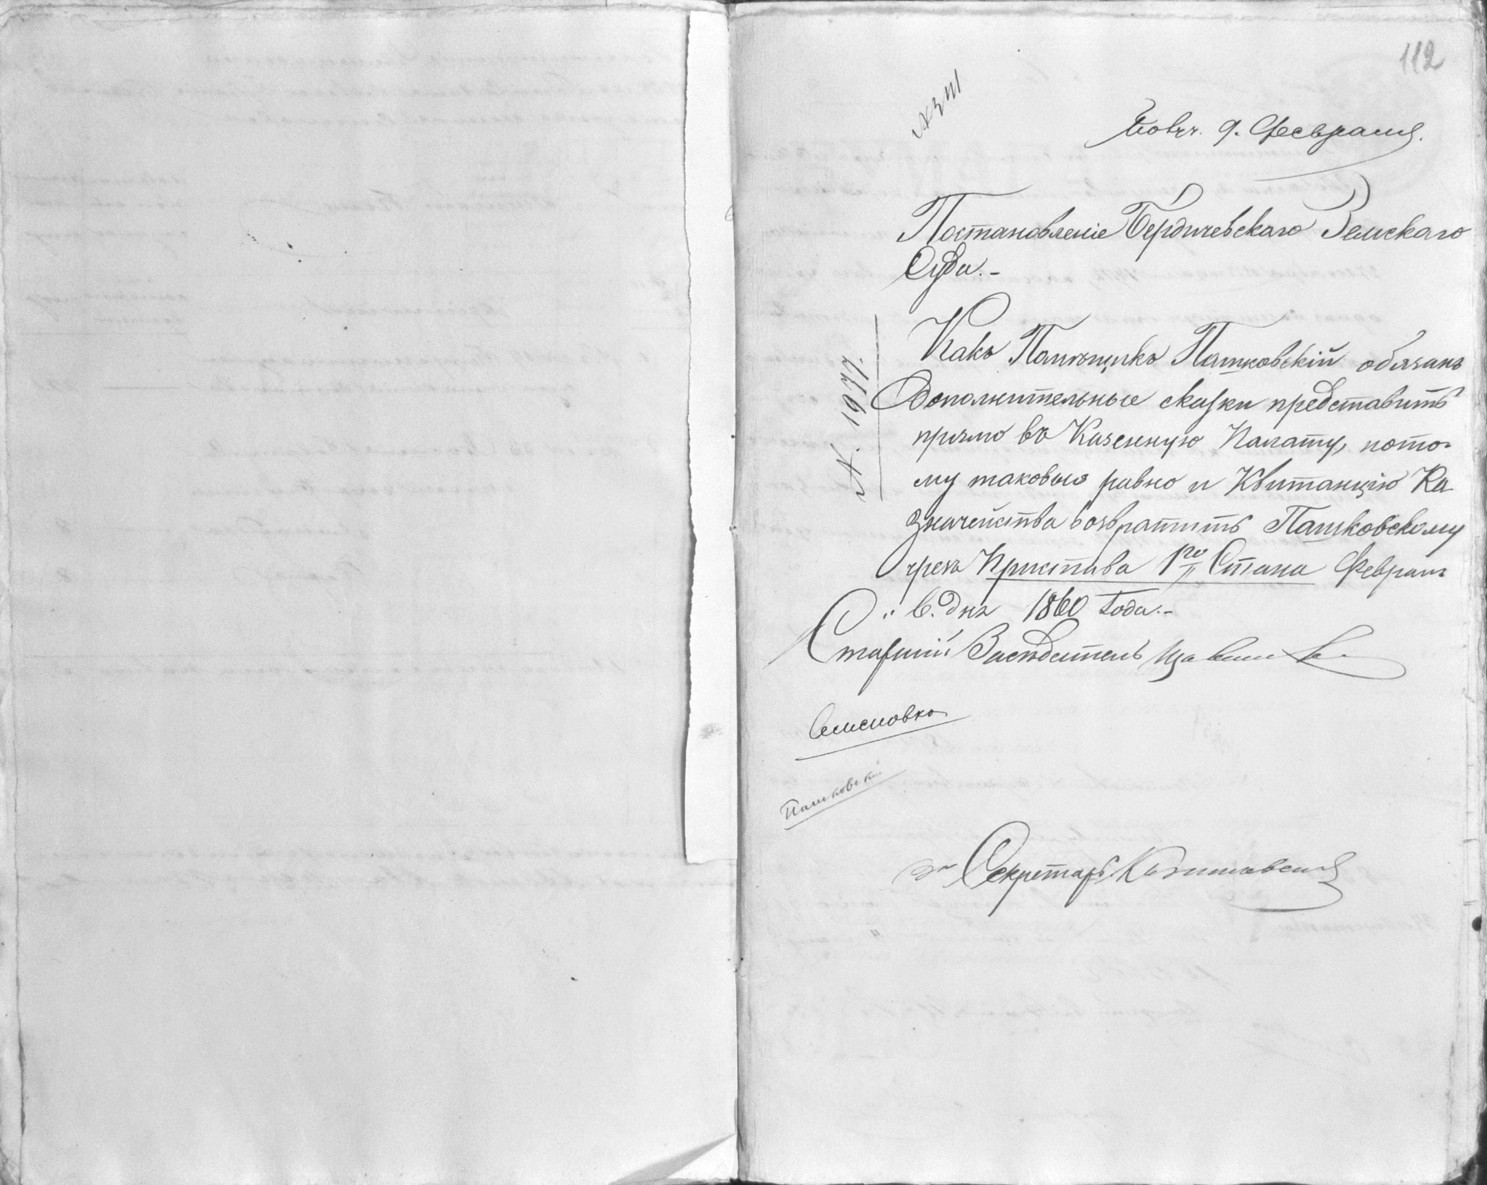 112
№ 3411
9. Февраля.
Постановленіе Бердичевскаго Земскаго
Суда.-
№. 1977.
Какъ Помѣщикъ Пашковскій обязанъ
Дополнительные сказки представить
прямо въ Казенную Палату, пото-
му таковыя равно и Квитанцію Ка
значейства возвратить Пашковскому
чрезъ Пристава 1го Стана Февраля
" 6. дня 1860 Года.-
Старшій Засѣдатель
Семеновка
Пашковскій
Секретарь